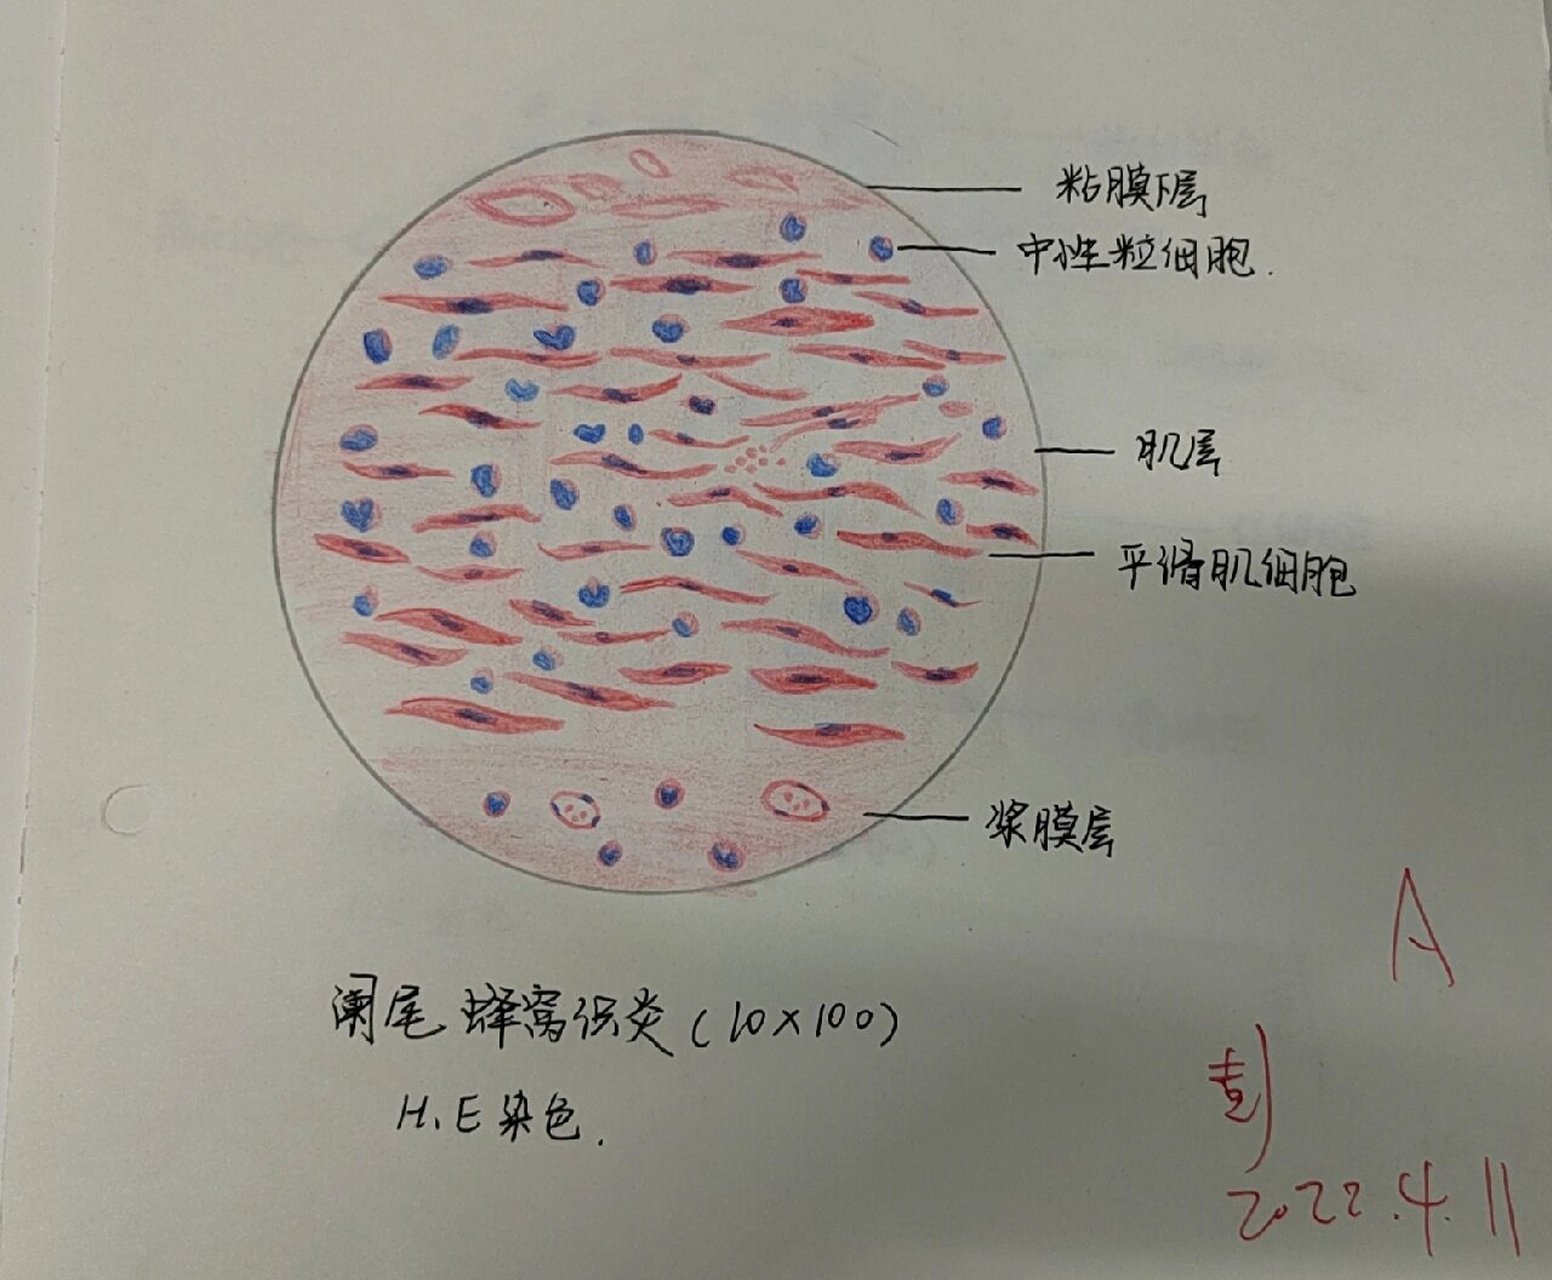 粘膜下层
中性粒细胞.
肌层
平滑肌细胞
浆膜层
阑尾 蜂窝织炎 (10×100)
H.E染色.
A
彭
2022.4.11